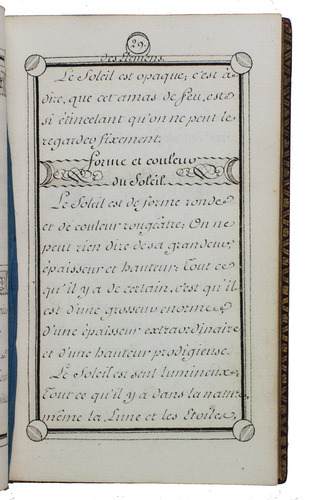 29.
des Elémens.
Le Soleil est opaque; c'est à
dire, que cet amas de feu, est
si étincelant qu'on ne peut le
regarder fixement.
forme et couleur
du Soleil.
Le Soleil est de forme ronde
et de couleur rougeâtre; On ne
peut rien dire de sa grandeur
épaisseur et hauteur; Tout ce
qu'il y a de certain, c'est qu'il
est d'une grosseur enorme
d'une épaisseur extraordinaire
et d'une hauteur prodigieuse.
Le Soleil est seul lumineux;
Tout ce qu'il y a dans la nature
même la Lune et les Etoiles,